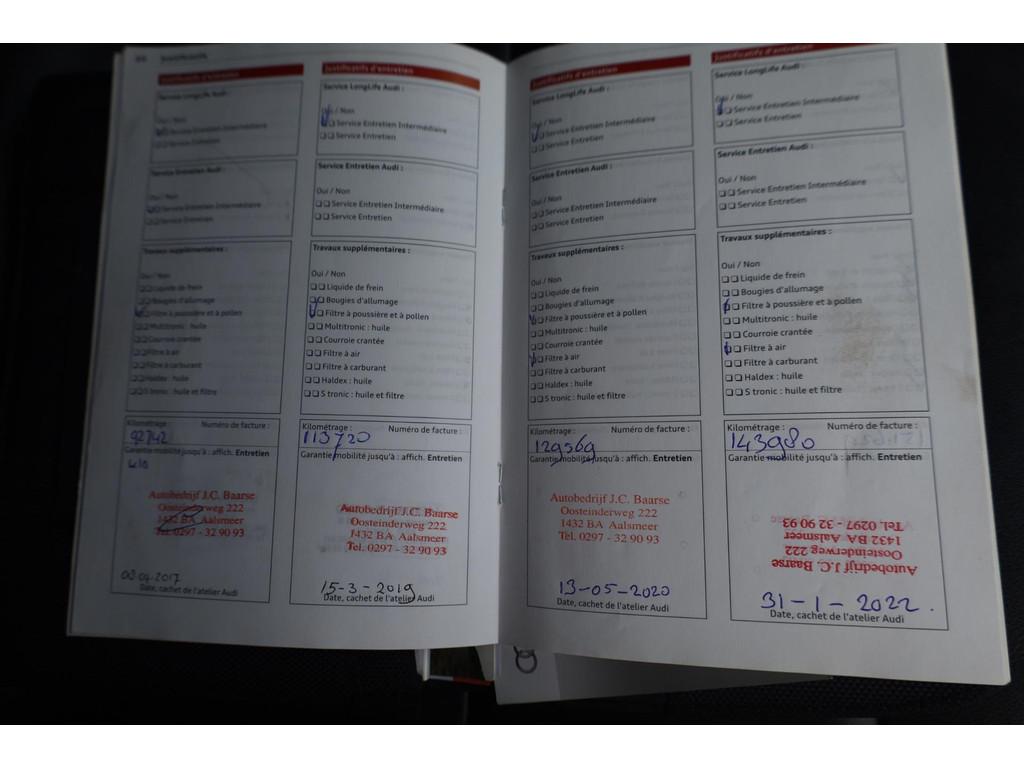 Justificatifs d'entretien
Service LongLife Audi :
Oui / Non
Service Entretien Intermédiaire
Service Entretien
Service Entretien Audi :
Oui / Non
Service Entretien Intermédiaire
Service Entretien
Travaux supplémentaires :
Oui / Non
Liquide de frein
Bougies d'allumage
Filtre à poussière et à pollen
Multitronic : huile
Courroie crantée
Filtre à air
Filtre à carburant
Haldex : huile
S tronic : huile et filtre
Kilométrage : Numéro de facture :
92742
Garantie mobilité jusqu'à : affich. Entretien
Autobedrijf J.C. Baarse
Oosteinderweg 222
1432 BA Aalsmeer
Tel. 0297 - 32 90 93
03.04.2017
Date, cachet de l'atelier Audi
Justificatifs d'entretien
Service LongLife Audi :
Oui / Non
Service Entretien Intermédiaire
Service Entretien
Service Entretien Audi :
Oui / Non
Service Entretien Intermédiaire
Service Entretien
Travaux supplémentaires :
Oui / Non
Liquide de frein
Bougies d'allumage
Filtre à poussière et à pollen
Multitronic : huile
Courroie crantée
Filtre à air
Filtre à carburant
Haldex : huile
S tronic : huile et filtre
Kilométrage : Numéro de facture :
113720
Garantie mobilité jusqu'à : affich. Entretien
Autobedrijf J.C. Baarse
Oosteinderweg 222
1432 BA Aalsmeer
Tel. 0297 - 32 90 93
15-3-2019
Date, cachet de l'atelier Audi
Justificatifs d'entretien
Service LongLife Audi :
Oui / Non
Service Entretien Intermédiaire
Service Entretien
Service Entretien Audi :
Oui / Non
Service Entretien Intermédiaire
Service Entretien
Travaux supplémentaires :
Oui / Non
Liquide de frein
Bougies d'allumage
Filtre à poussière et à pollen
Multitronic : huile
Courroie crantée
Filtre à air
Filtre à carburant
Haldex : huile
S tronic : huile et filtre
Kilométrage : Numéro de facture :
129569
Garantie mobilité jusqu'à : affich. Entretien
Autobedrijf J.C. Baarse
Oosteinderweg 222
1432 BA Aalsmeer
Tel. 0297 - 32 90 93
13-05-2020
Date, cachet de l'atelier Audi
Justificatifs d'entretien
Service LongLife Audi :
Oui / Non
Service Entretien Intermédiaire
Service Entretien
Service Entretien Audi :
Oui / Non
Service Entretien Intermédiaire
Service Entretien
Travaux supplémentaires :
Oui / Non
Liquide de frein
Bougies d'allumage
Filtre à poussière et à pollen
Multitronic : huile
Courroie crantée
Filtre à air
Filtre à carburant
Haldex : huile
S tronic : huile et filtre
Kilométrage : Numéro de facture :
143980
Garantie mobilité jusqu'à : affich. Entretien
Autobedrijf J.C. Baarse
Oosteinderweg 222
1432 BA Aalsmeer
Tel. 0297 - 32 90 93
31-1-2022.
Date, cachet de l'atelier Audi